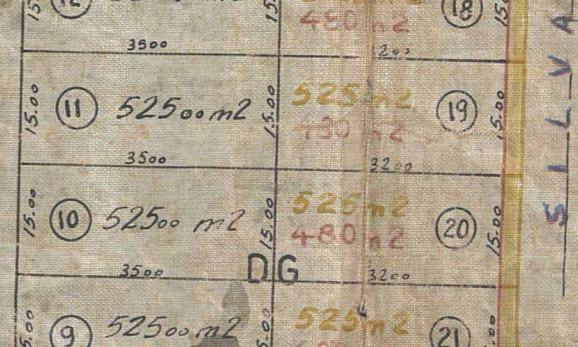 12
18
15.00
480 m2
3500
15.00
11
52500 m2
15.00
525 m2
480 m2
19
15.00
3500
3200
15.00
10
52500 m2
15.00
525 m2
480 m2
20
15.00
3500
DG
3200
9
52500 m2
525 m2
21
SILVA